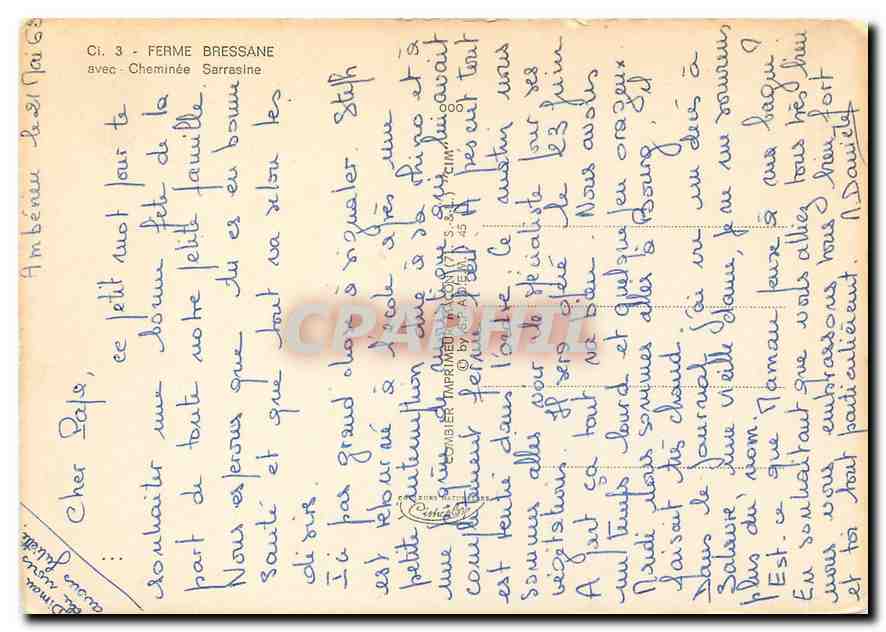 Ci. 3 - FERME BRESSANE
avec - Cheminée Sarrasine
Ambérieu le 21 Mai 69
Cher Papa,
ce petit mot pour te
souhaiter une bonne fête de la
part de toute notre petite famille.
Nous espérons que tu es en bonne
santé et que tout va selon tes
désirs.
Ici pas grand chose à signaler. Steph
est retourné à l'école après une
petite interruption due à sa rhino et à
une du qui lui avait
complètement fermé l'œil. A présent tout
est rentré dans l'ordre. Ce matin nous
sommes allés voir le spécialiste pour ses
végétations. Il sera opéré le 23 juin.
A part ça tout va bien. Nous avons
un temps lourd et quelque peu orageux
Mardi nous sommes allés à Bourg, il
faisait très chaud.
Dans le journal j'ai vu un décès à
une vieille dame, je ne me souviens
plus du nom.
Est-ce que Maman pense à ma bague?
En souhaitant que vous alliez tous très bien
nous vous embrassons tous bien fort
et toi tout particulièrement. Danièle
COMBIER IMPRIMEUR MACON (71 S.-&-L.) "CIM"
© by S.P.A.D.E.M.
COULEURS NATURELLES
Cimcolor
CPAPHIL